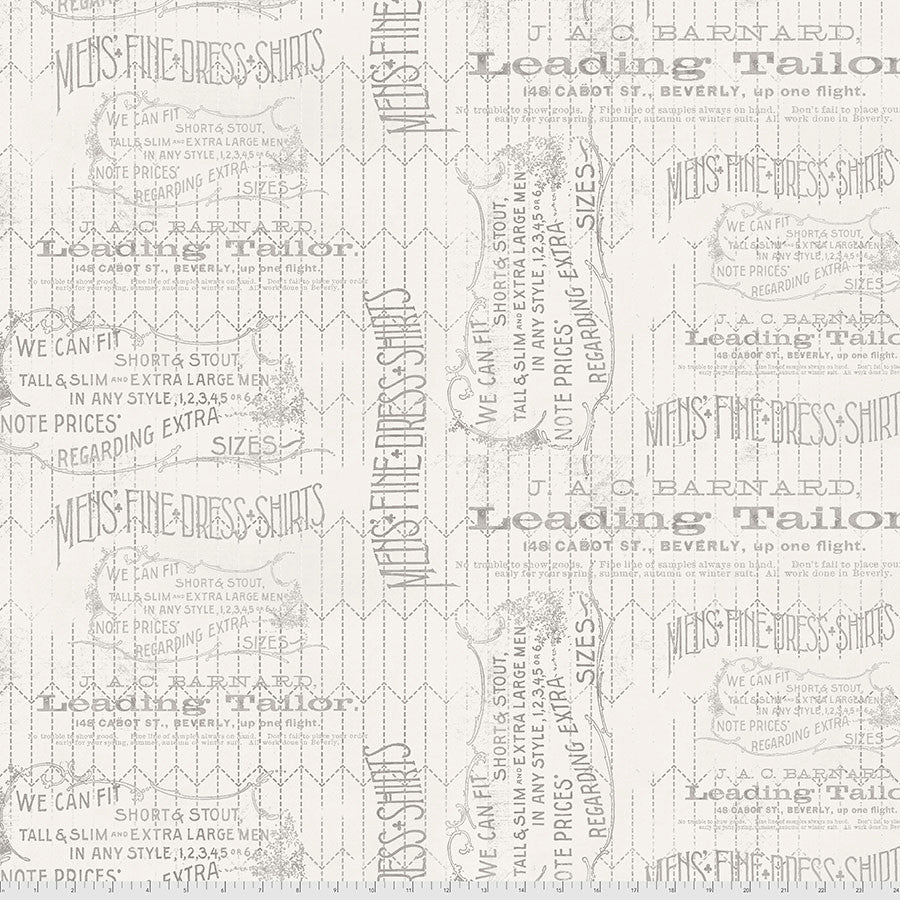 REGARDING EXTRA
MENS' FINE DRESS SHIRTS
WE CAN FIT
SHORT & STOUT,
TALL & SLIM AND EXTRA LARGE MEN
IN ANY STYLE, 1,2,3,4,5 OR 6
NOTE PRICES'
REGARDING EXTRA
SIZES
J. A. C. BARNARD,
Leading Tailor.
148 CABOT ST., BEVERLY, up one flight.
No trouble to show goods. Fine line of samples always on hand. Don't fail to place your order
early for your spring, summer, autumn or winter suit. All work done in Beverly.
WE CAN FIT
SHORT & STOUT,
TALL & SLIM AND EXTRA LARGE MEN
IN ANY STYLE, 1,2,3,4,5 OR 6
NOTE PRICES'
REGARDING EXTRA
SIZES
MENS' FINE DRESS SHIRTS
WE CAN FIT
SHORT & STOUT,
TALL & SLIM AND EXTRA LARGE MEN
IN ANY STYLE, 1,2,3,4,5 OR 6
NOTE PRICES'
REGARDING EXTRA
SIZES
J. A. C. BARNARD,
Leading Tailor.
148 CABOT ST., BEVERLY, up one flight.
No trouble to show goods. Fine line of samples always on hand. Don't fail to place your order
early for your spring, summer, autumn or winter suit. All work done in Beverly.
WE CAN FIT
SHORT & STOUT,
TALL & SLIM AND EXTRA LARGE MEN
IN ANY STYLE, 1,2,3,4,5 OR 6
NOTE PRICES'
EXTRA
MENS' FINE
MENS' FINE DRESS SHIRTS
DRESS SHIRTS
J. A. C. BARNARD,
Leading Tailor
148 CABOT ST., BEVERLY, up one flight.
No trouble to show goods. Fine line of samples always on hand. Don't fail to place your
early for your spring, summer, autumn or winter suit. All work done in Beverly.
WE CAN FIT
SHORT & STOUT,
TALL & SLIM AND EXTRA LARGE MEN
IN ANY STYLE, 1,2,3,4,5 OR 6
NOTE PRICES'
REGARDING EXTRA
SIZES
MENS' FINE DRESS SHIRTS
WE CAN FIT
SHORT & STOUT,
TALL & SLIM AND EXTRA LARGE MEN
IN ANY STYLE, 1,2,3,4,5 OR 6
NOTE PRICES'
REGARDING EXTRA
SIZES
J. A. C. BARNARD,
Leading Tailo
148 CABOT ST., BEVERLY, up one flight.
No trouble to show goods. Fine line of samples always on hand. Don't fail to place
early for your spring, summer, autumn or winter suit. All work done in Beverly.
MENS' FINE DRESS SHIRTS
J. A. C. BARNARD,
Leading Tailor
148 CABOT ST., BEVERLY, up one flight.
No trouble to show goods. Fine line of samples always on hand. Don't fail to place your
early for your spring, summer, autumn or winter suit. All work done in Beverly.
WE CAN FIT
SHORT & STOUT,
TALL & SLIM AND EXTRA LARGE MEN
IN ANY STYLE, 1,2,3,4,5 OR 6
NOTE PRICES'
REGARDING EXTRA
SIZES
MENS' FINE DRESS SHIRTS
WE CAN FIT
SHORT & STOUT,
TALL & SLIM AND EXTRA LARGE MEN
IN ANY STYLE, 1,2,3,4,5 OR 6
NOTE PRICES'
REGARDING EXTRA
SIZES
J. A. C. BARNARD
Leading Tailo
148 CABOT ST., BEVERLY, up one flight.
No trouble to show goods. Fine line of samples always on hand. Don't fail to place
early for your spring, summer, autumn or winter suit. All work done in Beverly.
MENS' FINE DRESS SHIRTS
1 2 3 4 5 6 7 8 9 10 11 12 13 14 15 16 17 18 19 20 21 22 23 24